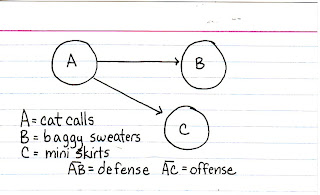 A
B
C
A = cat calls
B = baggy sweaters
C = mini skirts
A̅B̅ = defense A̅C̅ = offense